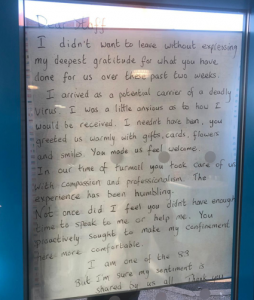 Dear Staff
I didn't want to leave without expressing
my deepest gratitude for what you have
done for us over these past two weeks.
I arrived as a potential carrier of a deadly
virus. I was a little anxious as to how I
would be received. I needn't have been, you
greeted us warmly with gifts, cards, flowers
and smiles. You made us feel welcome.
In our time of turmoil you took care of us
with compassion and professionalism. The
experience has been humbling.
Not once did I feel you didn't have enough
time to speak to me or help me. You
proactively sought to make my confinement
here more comfortable.
I am one of the 83
But I'm sure my sentiment is
shared by us all. Thank you